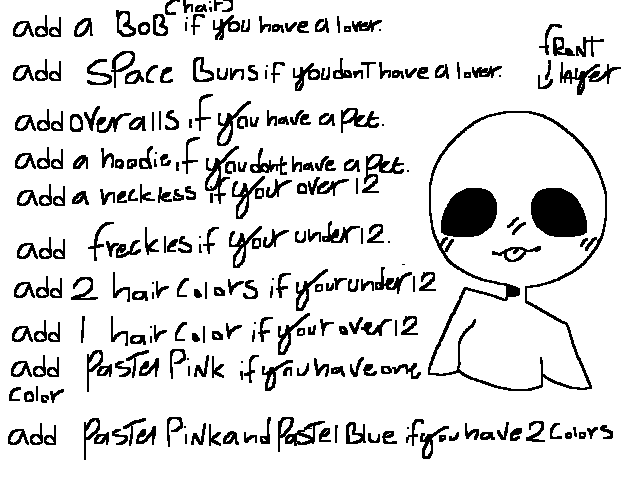 (hair)
add a BoB if you have a lover.
add space Buns if you don't have a lover.
front
layer
add overalls if you have a pet.
add a hoodie, if you dont have a pet.
add a neckless if your over 12
add freckles if your under 12.
add 2 hair colors if your under 12
add 1 hair color if your over 12
add Pastel Pink if you have one
color
add Pastel Pink and Pastel Blue if you have 2 colors